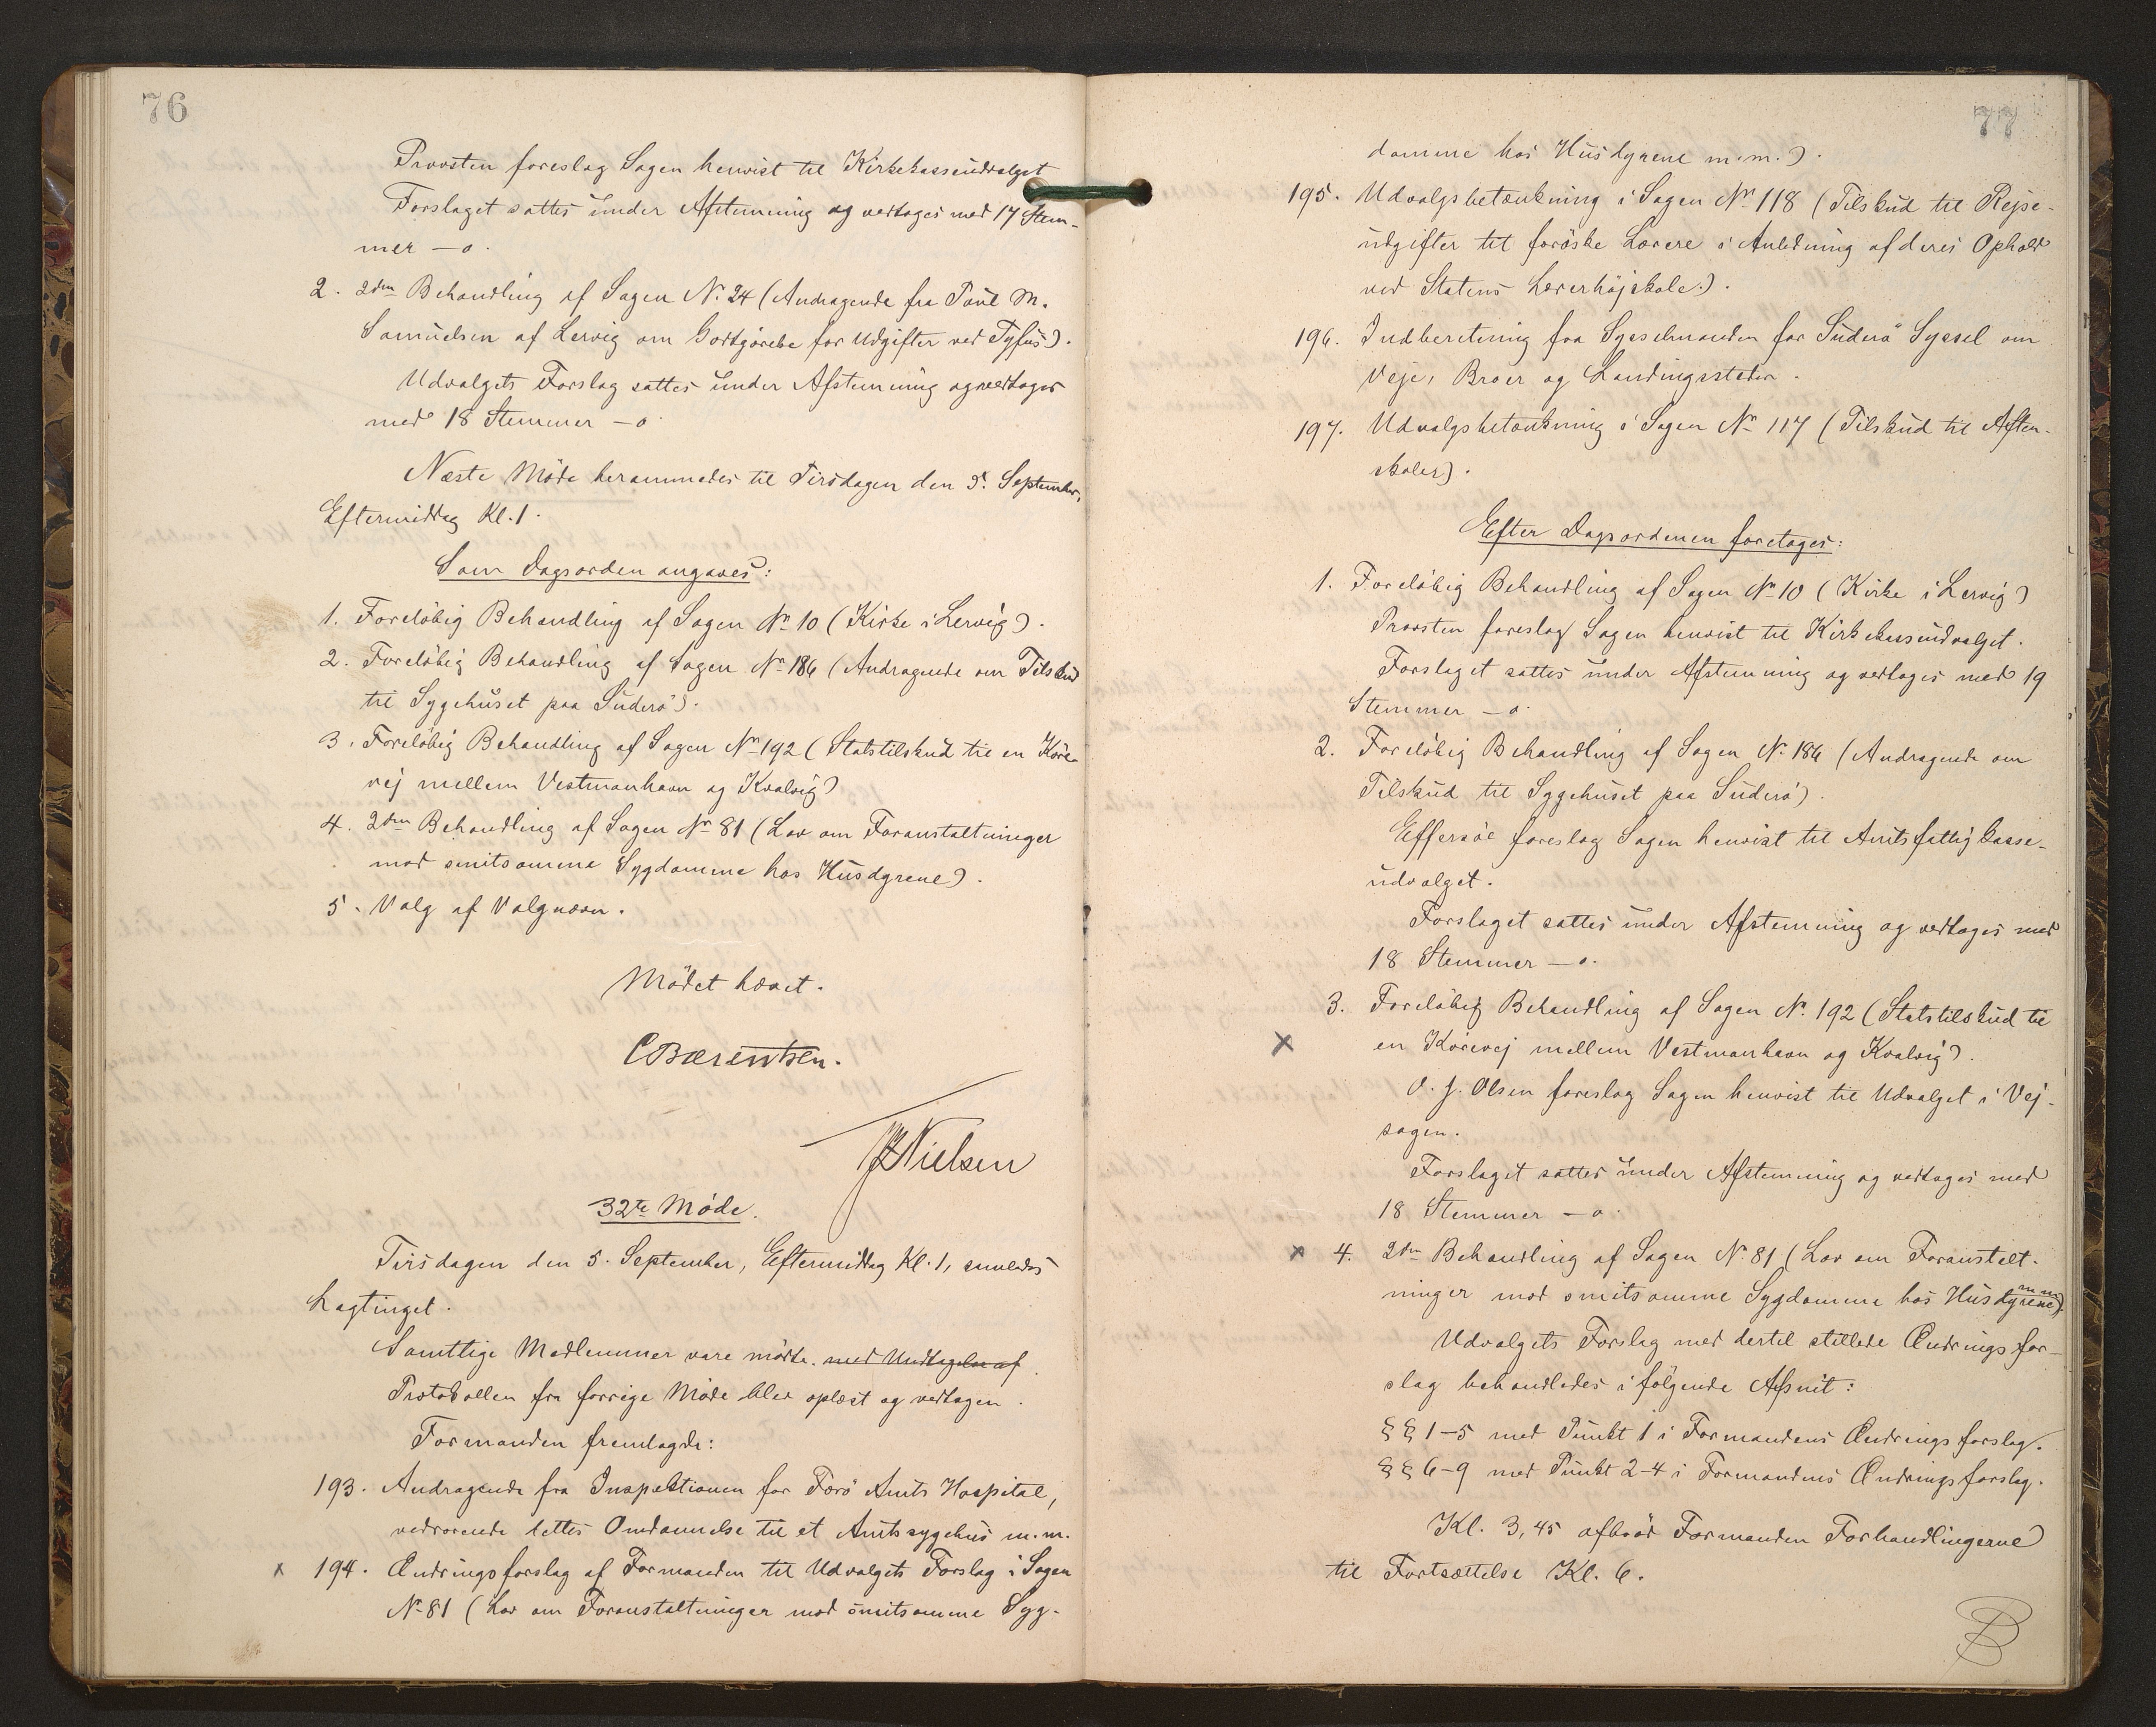 76
Provsten foreslog Sagen henvist til Kirkekasseudvalget
Forslaget sattes under Afstemning og vedtoges med 17 Stem-
mer — o.
2. 2den Behandling af Sagen No. 24 (Andragende fra Poul M.
Samuelsen af Lervig om Godtgörelse for Udgifter ved Tyfus).
Udvalgets Forslag sattes under Afstemning og vedtoges
med 18 Stemmer — o
Næste Möde berammedes til Tirsdagen den 5. September,
Eftermiddag Kl. 1.
Som Dagsorden angaves:
1. Forelöbig Behandling af Sagen No 10 (Kirke i Lervig).
2. Forelöbig Behandling af Sagen No 186 (Andragende om Tilskud
til Sygehuset paa Suderö).
3. Forelöbig Behandling af Sagen No 192 (Statstilskud til en Köre-
vej mellem Vestmanhavn og Kvalvig)
4. 2den Behandling af Sagen No 81 (Lov om Foranstaltninger
mod smitsomme Sygdomme hos Husdyrene).
5. Valg af Valgnævn.
Mödet hævet.
CBærentsen.
Nielsen
32te Möde.
Tirsdagen den 5. September, Eftermiddag Kl. 1, samledes
Lagtinget.
Samtlige Medlemmer vare mödte. med Undtagelse af
Protokollen fra forrige Möde blev oplæst og vedtagen.
Formanden fremlagde:
193. Andragende fra Inspektionen for Færö Amts Hospital,
vedrörende dettes Omdannelse til et Amtssygehus m.m.
x 194. Ændringsforslag af Formanden til Udvalgets Forslag i Sagen
No 81 (Lov om Foranstaltninger mod smitsomme Syg-
77
domme hos Husdyrene m.m.).
195. Udvalgsbetænkning i Sagen No 118 (Tilskud til Rejse-
udgifter til færöske Lærere i Anledning af deres Ophold
ved Statens Lærerhöjskole).
196. Indberetning fra Sysselmanden for Suderö Syssel om
Veje, Broer og Landingssteder.
197. Udvalgsbetænkning i Sagen No 117 (Tilskud til Aften-
skoler).
Efter Dagsordenen foretoges:
1. Forelöbig Behandling af Sagen No 10 (Kirke i Lervig)
Provsten foreslog Sagen henvist til Kirkekasseudvalget.
Forslaget sattes under Afstemning og vedtoges med 19
Stemmer — o.
2. Forelöbig Behandling af Sagen No. 186 (Andragende om
Tilskud til Sygehuset paa Suderö).
Effersöe foreslog Sagen henvist til Amtsfattigkasse-
udvalget.
Forslaget sattes under Afstemning og vedtoges med
18 Stemmer — o.
3. Forelöbig Behandling af Sagen No. 192 (Statstilskud til
x en Körevej mellem Vestmanhavn og Kvalvig).
O. J. Olsen foreslog Sagen henvist til Udvalget i Vej-
sagen.
Forslaget sattes under Afstemning og vedtoges med
18 Stemmer — o.
x 4. 2den Behandling af Sagen No. 81 (Lov om Foranstalt-
ninger mod smitsomme Sygdomme hos Husdyrene m m)
Udvalgets Forslag med dertil stillede Ændringsfor-
slag behandledes i fölgende Afsnit:
§§ 1-5 med Punkt 1 i Formandens Ændringsforslag.
§§ 6-9 med Punkt 2-4 i Formandens Ændringsforslag.
Kl. 3,45 afbröd Formanden Forhandlingerne
til Fortsættelse Kl. 6.
B